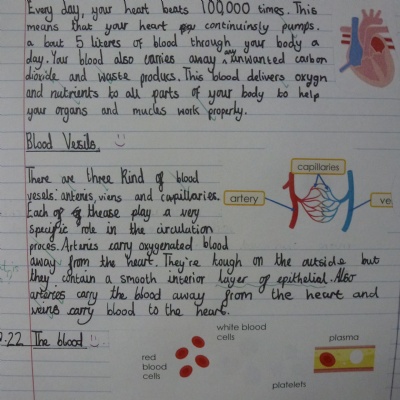 Every day, your heart beats 100,000 times. This
means that your heart continuinsly pumps.
a bout 5 literes of blood through your body a
day. Your blood also carries away unwanted carbon
dioxide and waste producs. This blood delivers oxygn
and nutrients to all parts of your body to help
your organs and mucles work properly.
Blood Vesils
There are three kind of blood
vesels: arteries, viens and capillaries.
Each of thease play a very
specific role in the circulation
proces. Arteris carry oxygenated blood
away from the heart. They're tough on the outside but
they contain a smooth interior layer of epithelial. Also
arteries carry the blood away from the heart and
veins carry blood to the heart.
capillaries
artery
ve
.22 The blood
white blood
cells
red
blood
cells
plasma
platelets